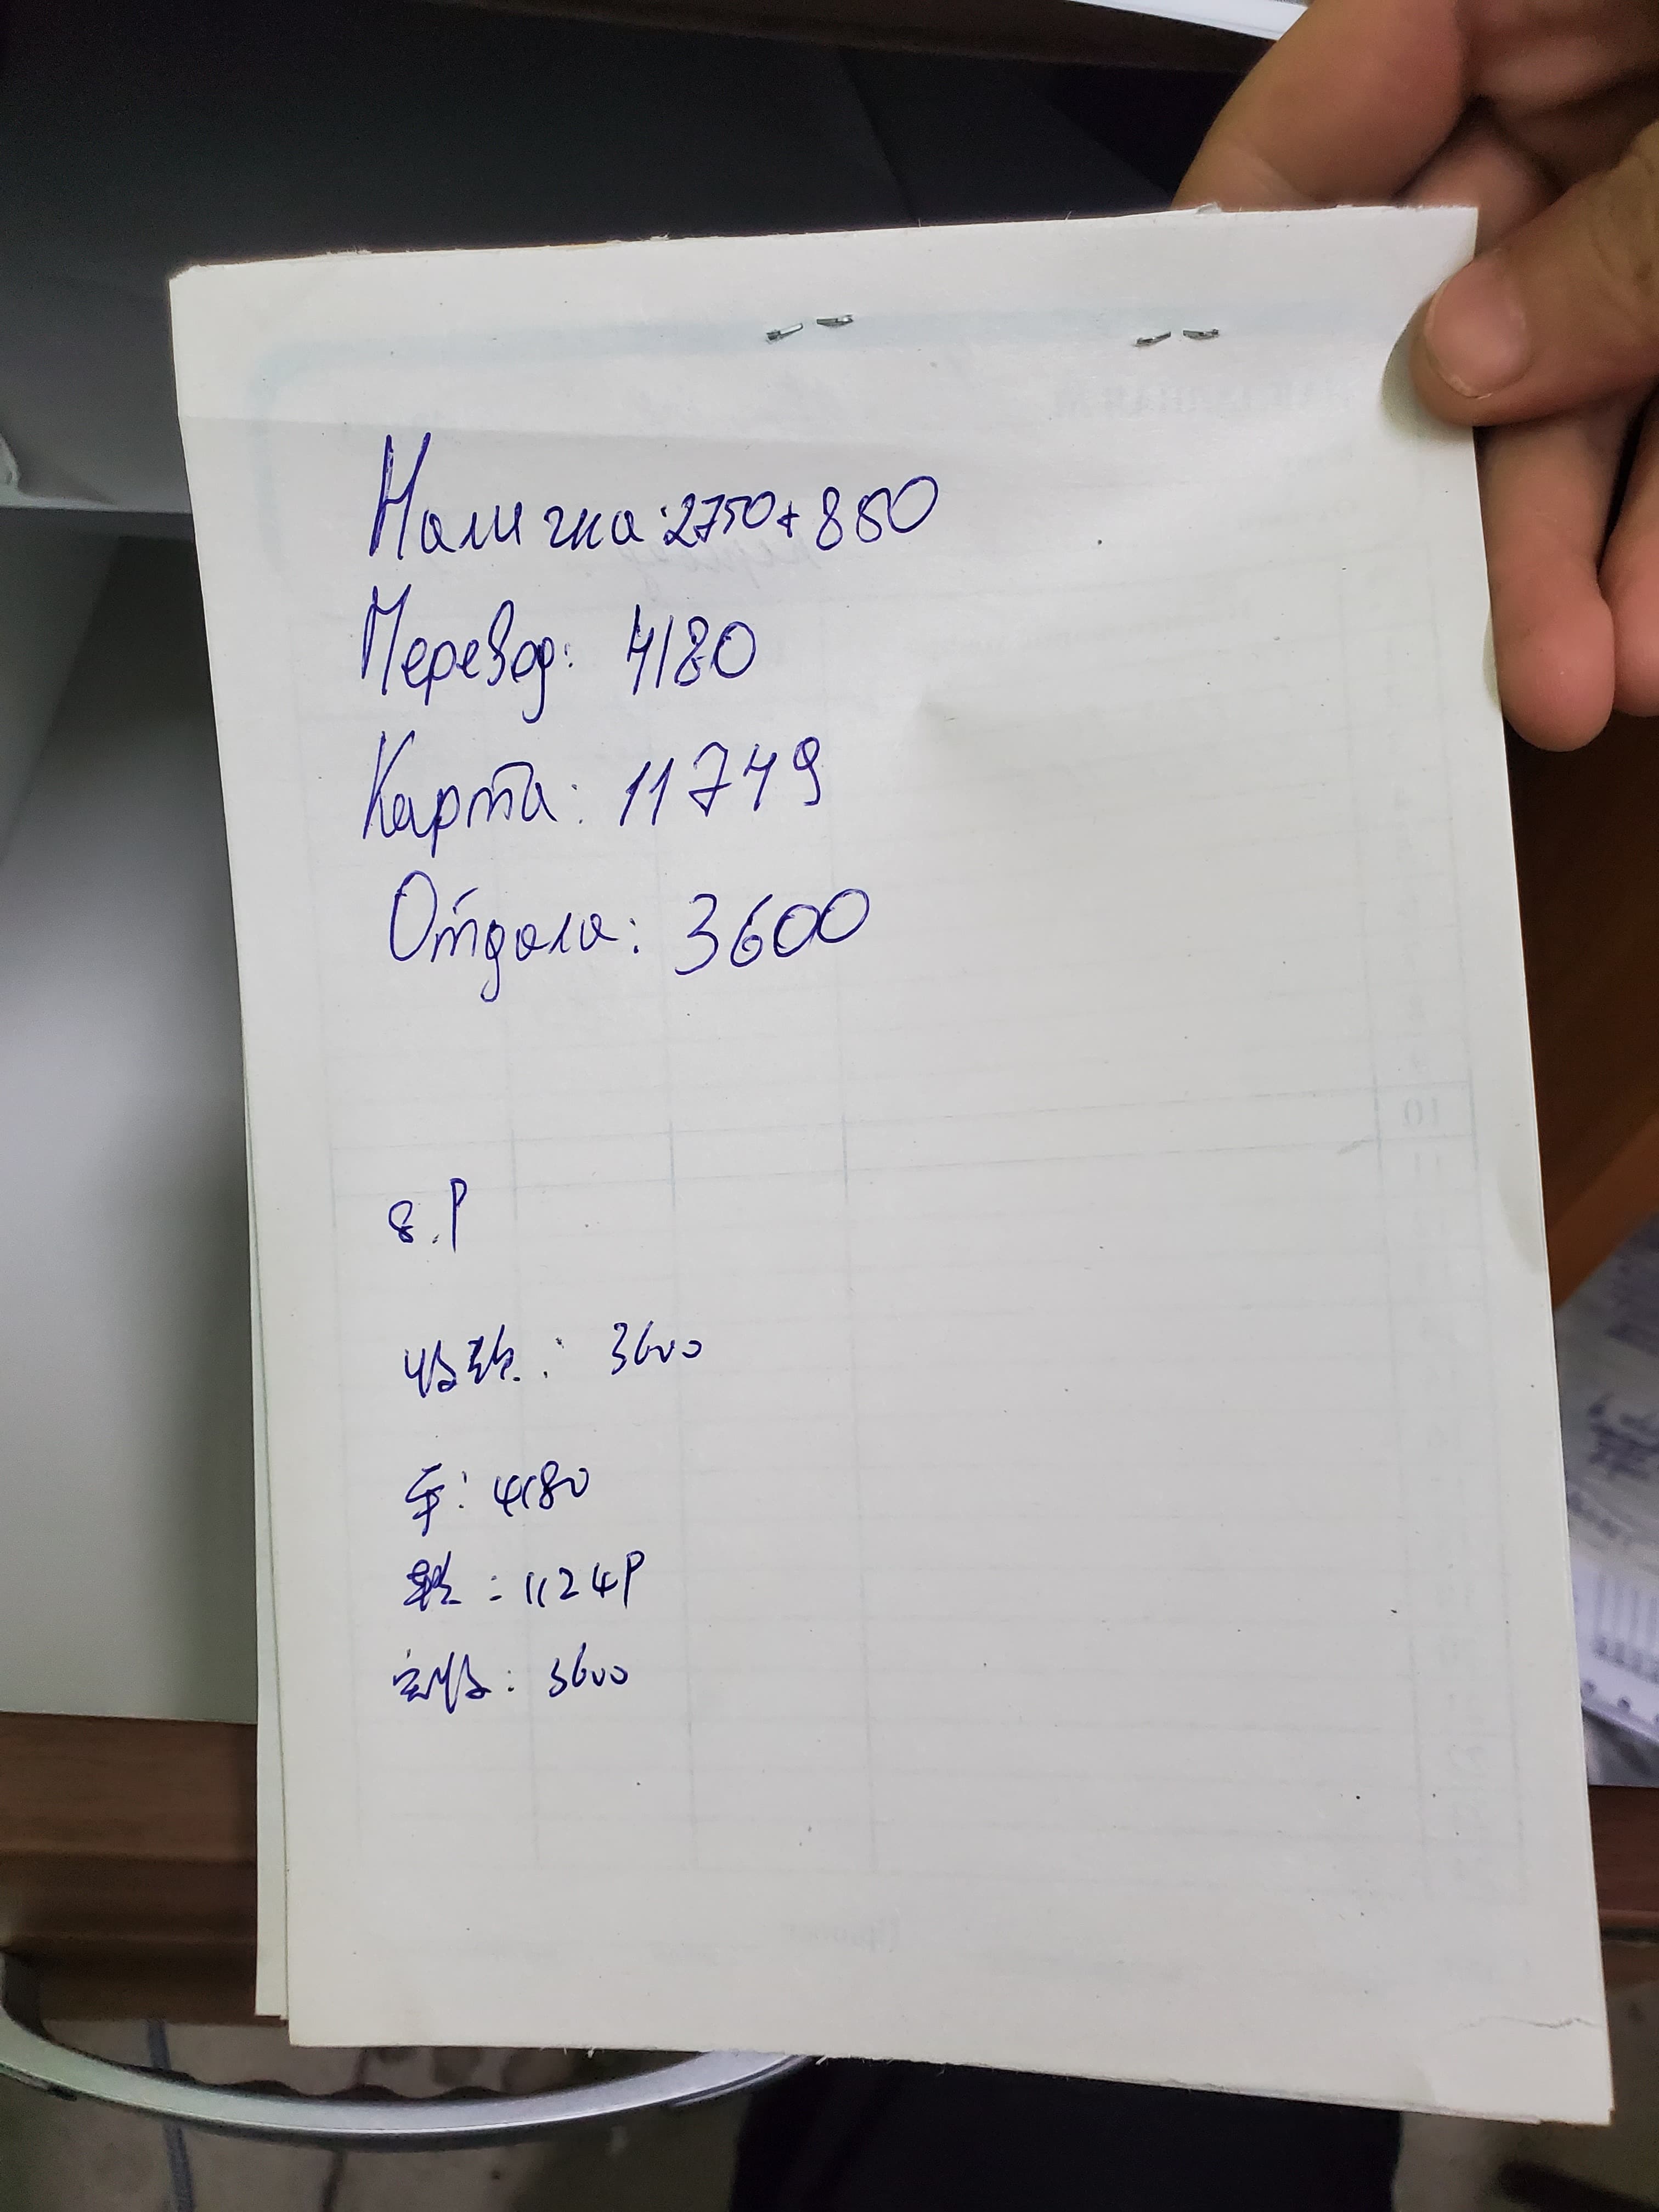 Наличка: 2750+850
Перевод: 4180
Карта: 11749
Отдала: 3600
8.9
收款: 3600
卡: 4180
: 11249
实收: 3600